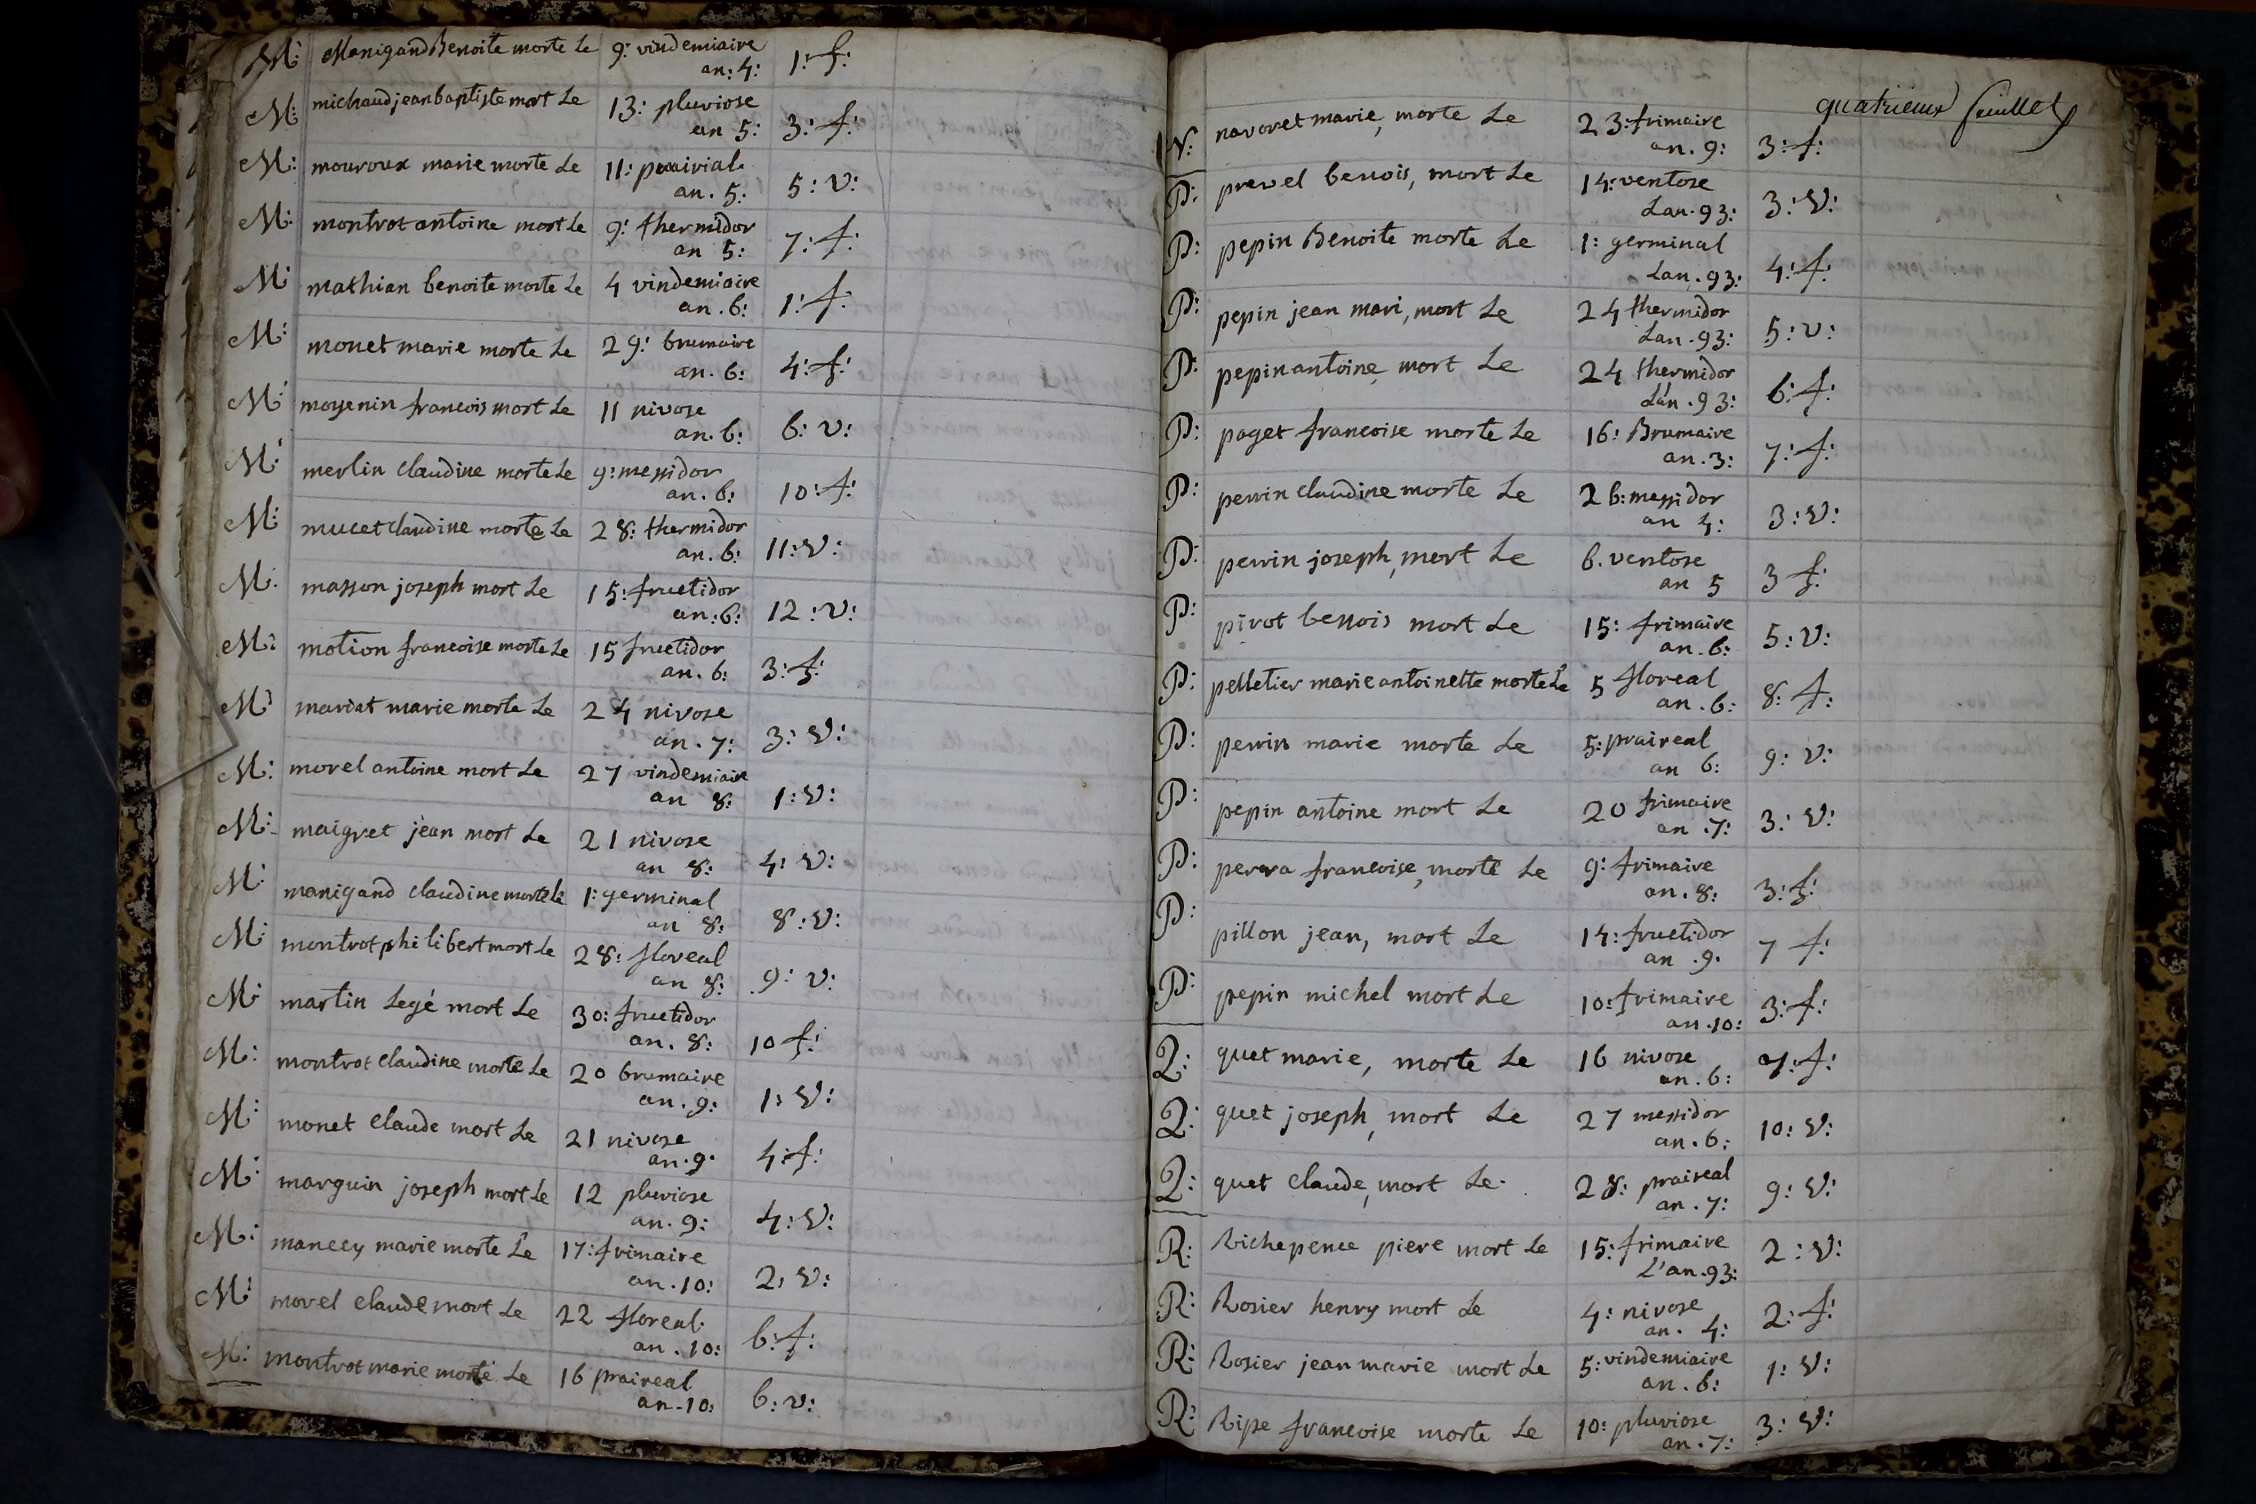 M: Manigand Benoite morte Le 9: vindemiaire 1: f:
an: 4:
M: michaud jean baptiste mort Le 13: pluviose 3: f:
an 5:
M: mouroux marie morte Le 11: prairial 5: v:
an. 5:
M: montrot antoine mort Le 9: thermidor 7: f:
an 5:
M: mathian benoite morte Le 4 vindemiaire 1: f:
an. 6:
M: monet marie morte Le 29: brumaire 4: f:
an. 6:
M: moyenin francois mort Le 11 nivose 6: v:
an. 6:
M: merlin claudine morte Le 9: messidor 10: f:
an. 6:
M: mucet claudine morte Le 28: thermidor 11: v:
an. 6:
M: masson joseph mort Le 15: fructidor 12: v:
an: 6:
M: motion francoise morte Le 15 fructidor 3: f:
an. 6:
M: mariat marie morte Le 24 nivose 3: v:
an. 7:
M: morel antoine mort Le 27 vindemiaire 1: v:
an 8:
M: maigret jean mort Le 21 nivose 4: v:
an 8:
M: manigand claudine morte Le 1: germinal 8: v:
an 8:
M: montrot philibert mort Le 28: floreal 9: v:
an 8:
M: martin Legé mort Le 30: fructidor 10 f:
an. 8:
M: montrot claudine morte Le 20 brumaire 1: v:
an. 9:
M: monet claude mort Le 21 nivose 4: f:
an. 9.
M: marguin joseph mort Le 12 pluviose 4: v:
an. 9:
M: manecy marie morte Le 17: frimaire 2: v:
an. 10:
M: morel claude mort Le 22 floreal 6: f:
an. 10:
M: montrot marie morte Le 16 praireal 6: v:
an. 10:
quatrieme feuillet
N: navoret marie, morte Le 23: frimaire 3: f:
an. 9:
P: prevel benois, mort Le 14: ventose 3: v:
Lan. 93:
P: pepin Benoite morte Le 1: germinal 4: f:
Lan. 93:
P: pepin jean mari, mort Le 24 thermidor 5: v:
Lan. 93:
P: pepin antoine, mort Le 24 thermidor 6: f:
Lan. 93:
P: paget francoise morte Le 16: Brumaire 7: f:
an. 3:
P: perrin claudine morte Le 26: messidor 3: v:
an 4:
P: perrin joseph, mort Le 6. ventose 3 f:
an 5
P: pivot benois mort Le 15: frimaire 5: v:
an. 6:
P: pelletier marie antoinette morte Le 5 floreal 8: f:
an. 6:
P: perrin marie morte Le 5: praireal 9: v:
an 6:
P: pepin antoine mort Le 20 frimaire 3: v:
an. 7:
P: perra francoise, morte Le 9: frimaire 3: f:
an. 8:
P: pillon jean, mort Le 14: fructidor 7 f:
an. 9.
P: pepin michel mort Le 10: frimaire 3: f:
an. 10:
Q: quet marie, morte Le 16 nivose 7: f:
an. 6:
Q: quet joseph, mort Le 27 messidor 10: v:
an. 6:
Q: quet claude, mort Le 28: praireal 9: v:
an. 7:
R: Richepence piere mort Le 15: frimaire 2: v:
L'an. 93:
R: Rosier henry mort Le 4: nivose 2: f:
an. 4:
R: Rosier jean marie mort Le 5: vindemiaire 1: v:
an. 6:
R: Ripe francoise morte Le 10: pluviose 3: v:
an. 7: